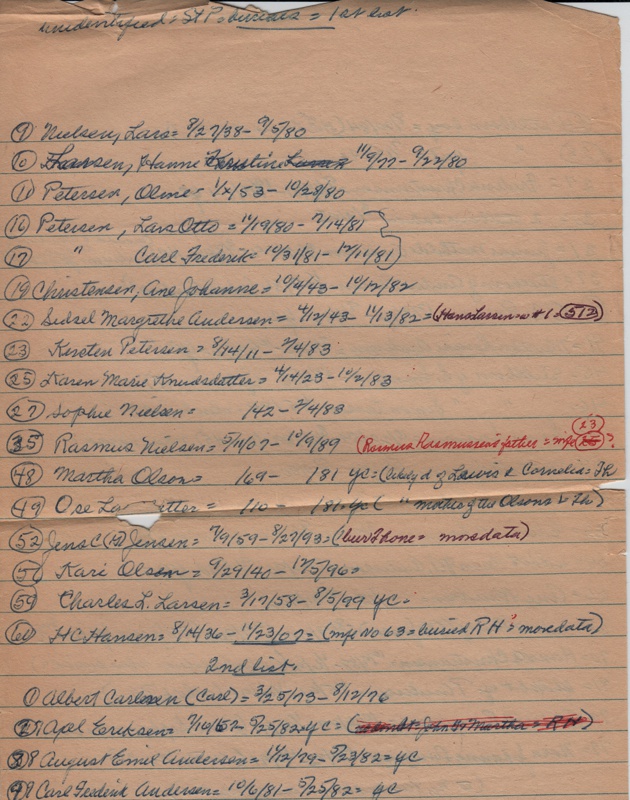 unidentified = St P. burials = 1st list.
9 Nielsen, Lars = 8/27/38 - 9/5/80
10 Hansen, Hanne Kerstine 11/9/77 - 9/22/80
11 Petersen, Oline = 1/x/53 - 10/28/80
16 Petersen, Lars Otto = 11/19/80 - 7/14/81
17 " Carl Frederik = 10/31/81 - 12/11/81
19 Christensen, Ane Johanne = 10/4/43 - 10/12/82
22 Sidsel Margrethe Andersen = 4/12/43 - 11/13/82 = (Hans Larsen = w #1 = 512)
23 Kirsten Petersen = 8/14/11 - 2/4/83
25 Karen Marie Knudsdatter = 4/14/23 - 10/2/83
27 Sophie Nielsen = 142 - 2/4/83
35 Rasmus Nielsen = 5/4/07 - 10/9/89 (Rasmus Rasmussen's father = mfc 23 ?
48 Martha Olson = 169 - 181 yc = (likely d of Lewis & Cornelia = Fh
49 Ose La tter = 110 - 181 yc ( " mother of the Olsons = Fh)
52 Jens C (H) Jensen = 7/9/59 - 8/27/93 = (bur Fhone = more data)
56 Kari Olsen = 9/29/40 - 12/5/96 =
59 Charles L. Larsen = 3/17/58 - 8/5/99 yc =
60 HC Hansen = 8/14/36 - 11/23/07 = (mfc No 63 = buried RH = more data)
2nd list.
1 Albert Carlsen (Carl) = 3/25/73 - 8/12/76
Apel Eriksen = 7/10/52 - 5/25/82 = yc =
8 August Emil Andersen = 11/12/79 - 5/23/82 = yc
9 Carl Frederik Andersen = 10/6/81 - 5/25/82 = yc